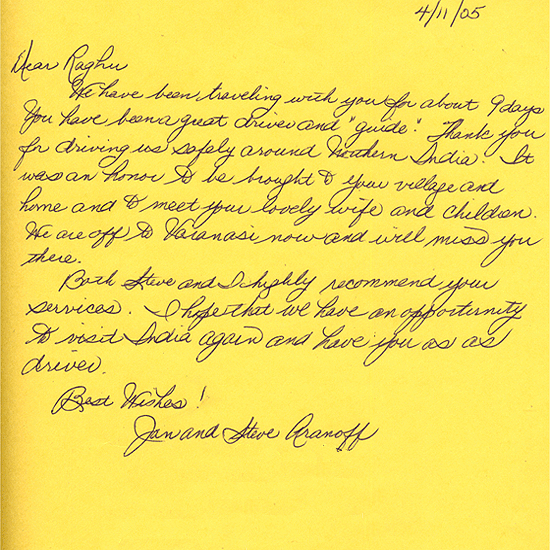 4/11/05
Dear Raghu
We have been traveling with you for about 9 days
You have been a great driver and "guide". Thank you
for driving us safely around Northern India. It
was an honor to be brought to your village and
home and to meet your lovely wife and children.
We are off to Varanasi now and will miss you
there.
Both Steve and I highly recommend your
services. I hope that we have an opportunity
to visit India again and have you as as
driver.
Best Wishes!
Jan and Steve Aranoff